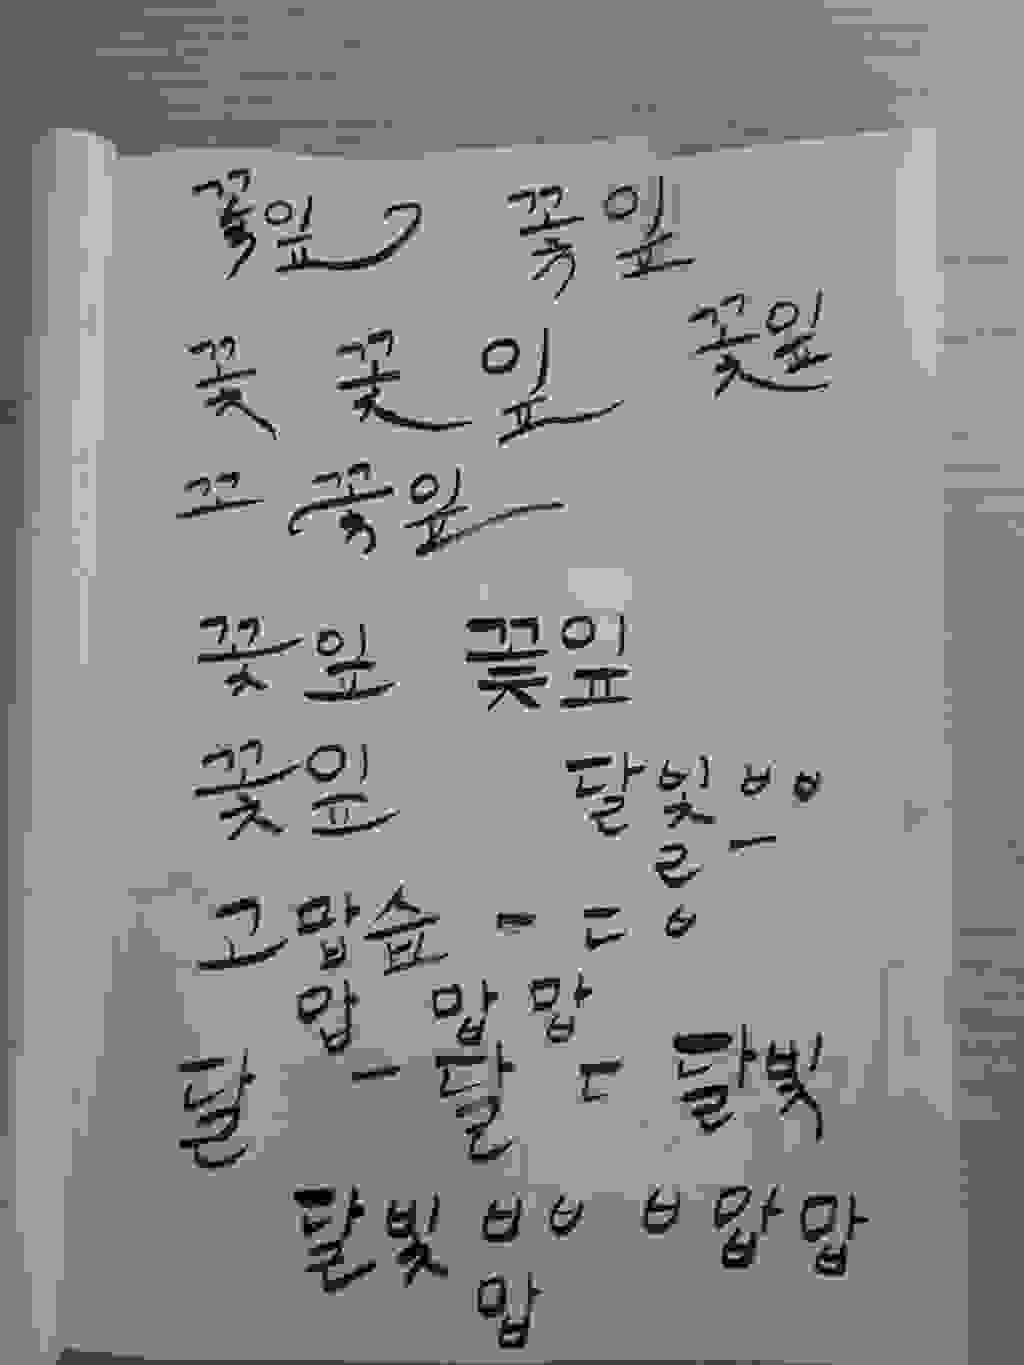 꽃잎 꽃잎
꽃 꽃 잎 꽃잎
꼬 꽃잎
꽃잎 꽃잎
꽃잎 달빛 ㅂ ㅂ
ㄹ ㅡ
고맙습 ㅡ ㄷ ㅇ
맙 맙 맙
달 ㅡ 달 ㄷ 달빛
달빛 ㅂ ㅂ ㅂ 맙 맙
맙